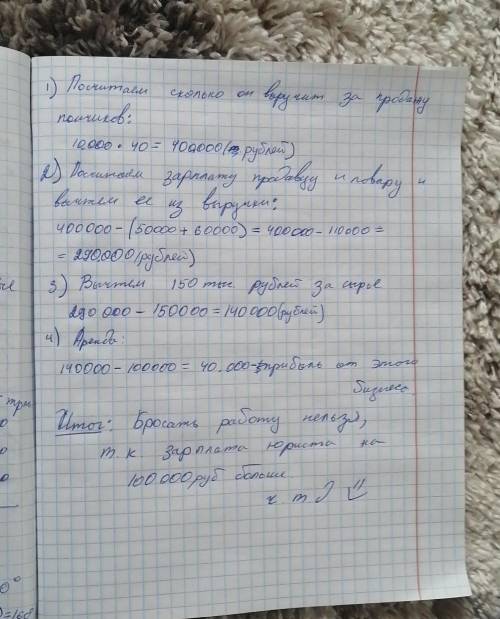 1) Посчитаем сколько он выручит за продажу
пончиков:
10.000 · 40 = 400000 (рублей)
2) Посчитаем зарплату продавцу и повару и
вычтем ее из выручки:
400000 - (50000 + 60000) = 400000 - 110000 =
= 290000 (рублей)
3) Вычтем 150 тыс. рублей за сырье
290 000 - 150000 = 140000 (рублей)
4) Аренда:
140000 - 100000 = 40.000 - прибыль от этого
бизнеса.
Итог: Бросать работу нельзя,
т.к. зарплата юриста на
100000 руб больше
ч т д
0°
0=168